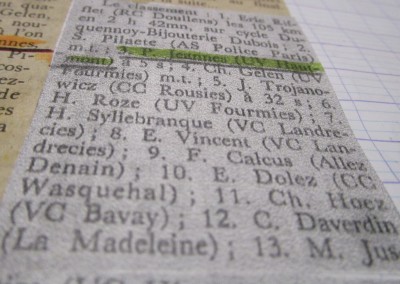 Le classement : 1. Eric
flet (RC Doullens) les 105 km
en 2 h 42mn, sur cycle Du-
quennoy-Bijouterie Dubois ; 2.
S. Pilaete (AS Police Paris)
m.t. ; 3. P. Jeannes (UV
mont) à 5 s ; 4. Ch. Gelen (UV
Fourmies) m.t. ; 5. J. Trojano-
wicz (CC Rousies) à 32 s ; 6.
H. Roze (UV Fourmies) ; 7.
H. Syllebranque (VC Landre-
cies) ; 8. E. Vincent (VC Lan-
drecies) ; 9. F. Calcus (Allez
Denain) ; 10. E. Dolez (CC
Wasquehal) ; 11. Ch. Hoez
(VC Bavay) ; 12. C. Daverdin
(La Madeleine) ; 13. M. Jus